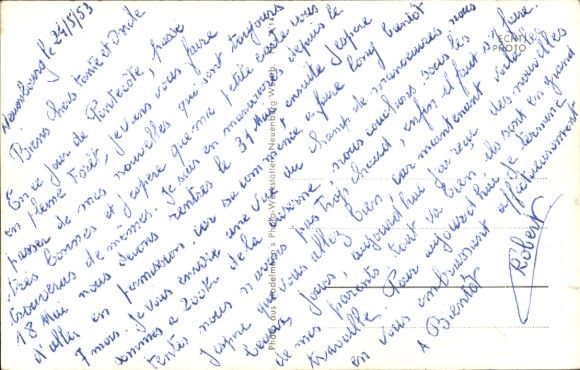 Neuenbourg le 24/5/53
Biens chers tante et oncle
En ce jour de Pentecôte, passé
en pleine Forêt, je viens vous faire
passer de mes nouvelles qui sont toujours
très bonnes et j'espère que ma petite carte vous
trouveras de mêmes. Je suis en manœuvres depuis le
18 Mai nous devons rentrés le 31 Mai ensuite j'espère
d'aller en permission, car sa commence a faire long bientôt
7 mois. je vous envoie une vue du champ de manœuvres nous
sommes a 200km de la caserne, nous couchons sous les
tentes nous n'avons pas trop chaud, enfin il faut s'y faire.
J'espère que vous allez bien, car maintenant
beaux jours, aujourd'hui j'ai reçu des nouvelles
de mes parents tout va bien ils sont en grand
travaille. Pour aujourd'hui je termine
en vous embrassant affectueusement
A Bientôt
Robert
ECHT
PHOTO
Photo aus Stadelmann's Photo-Werkstätten, Neuenbürg-Württbg.